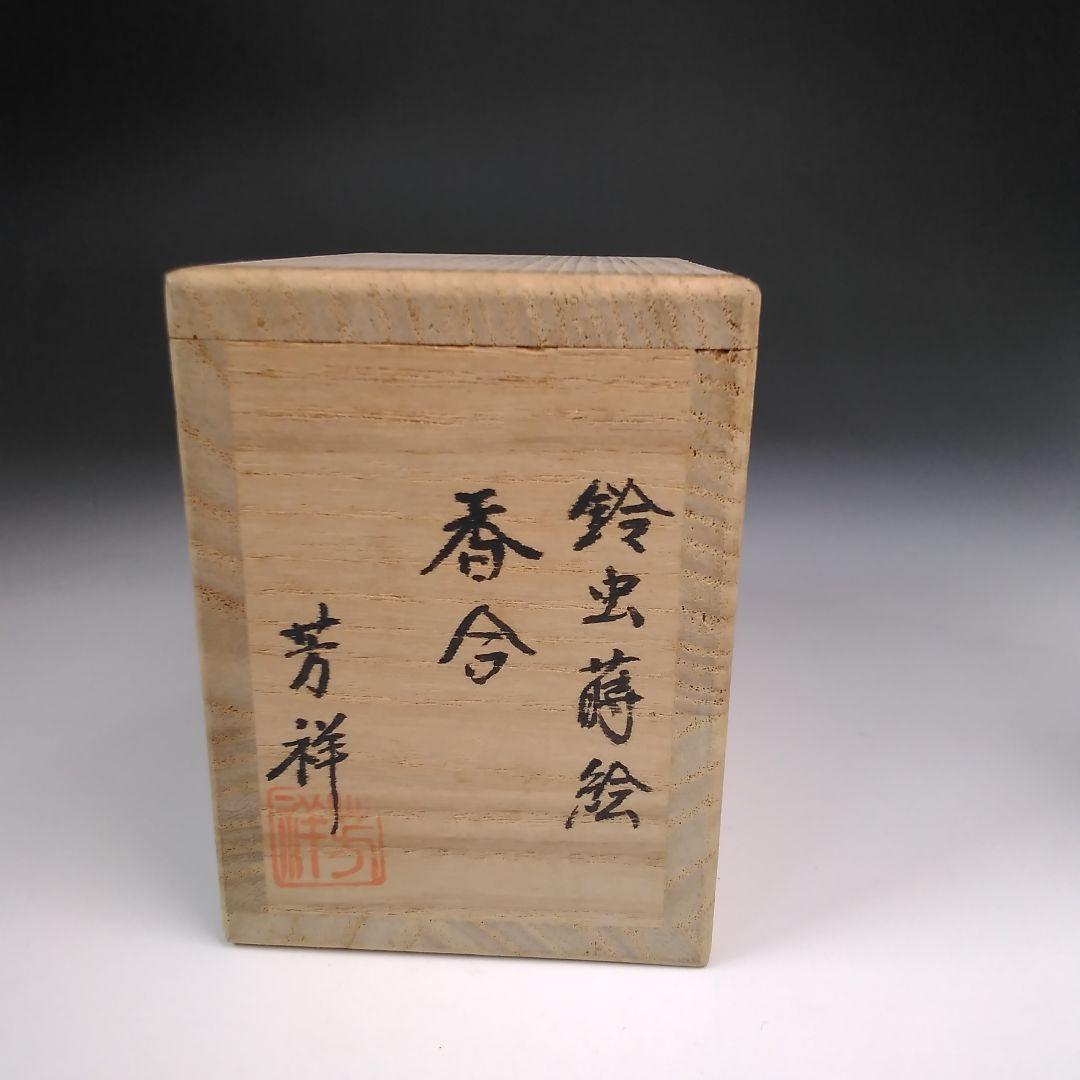 鈴虫蒔絵
香合
芳祥
芳祥